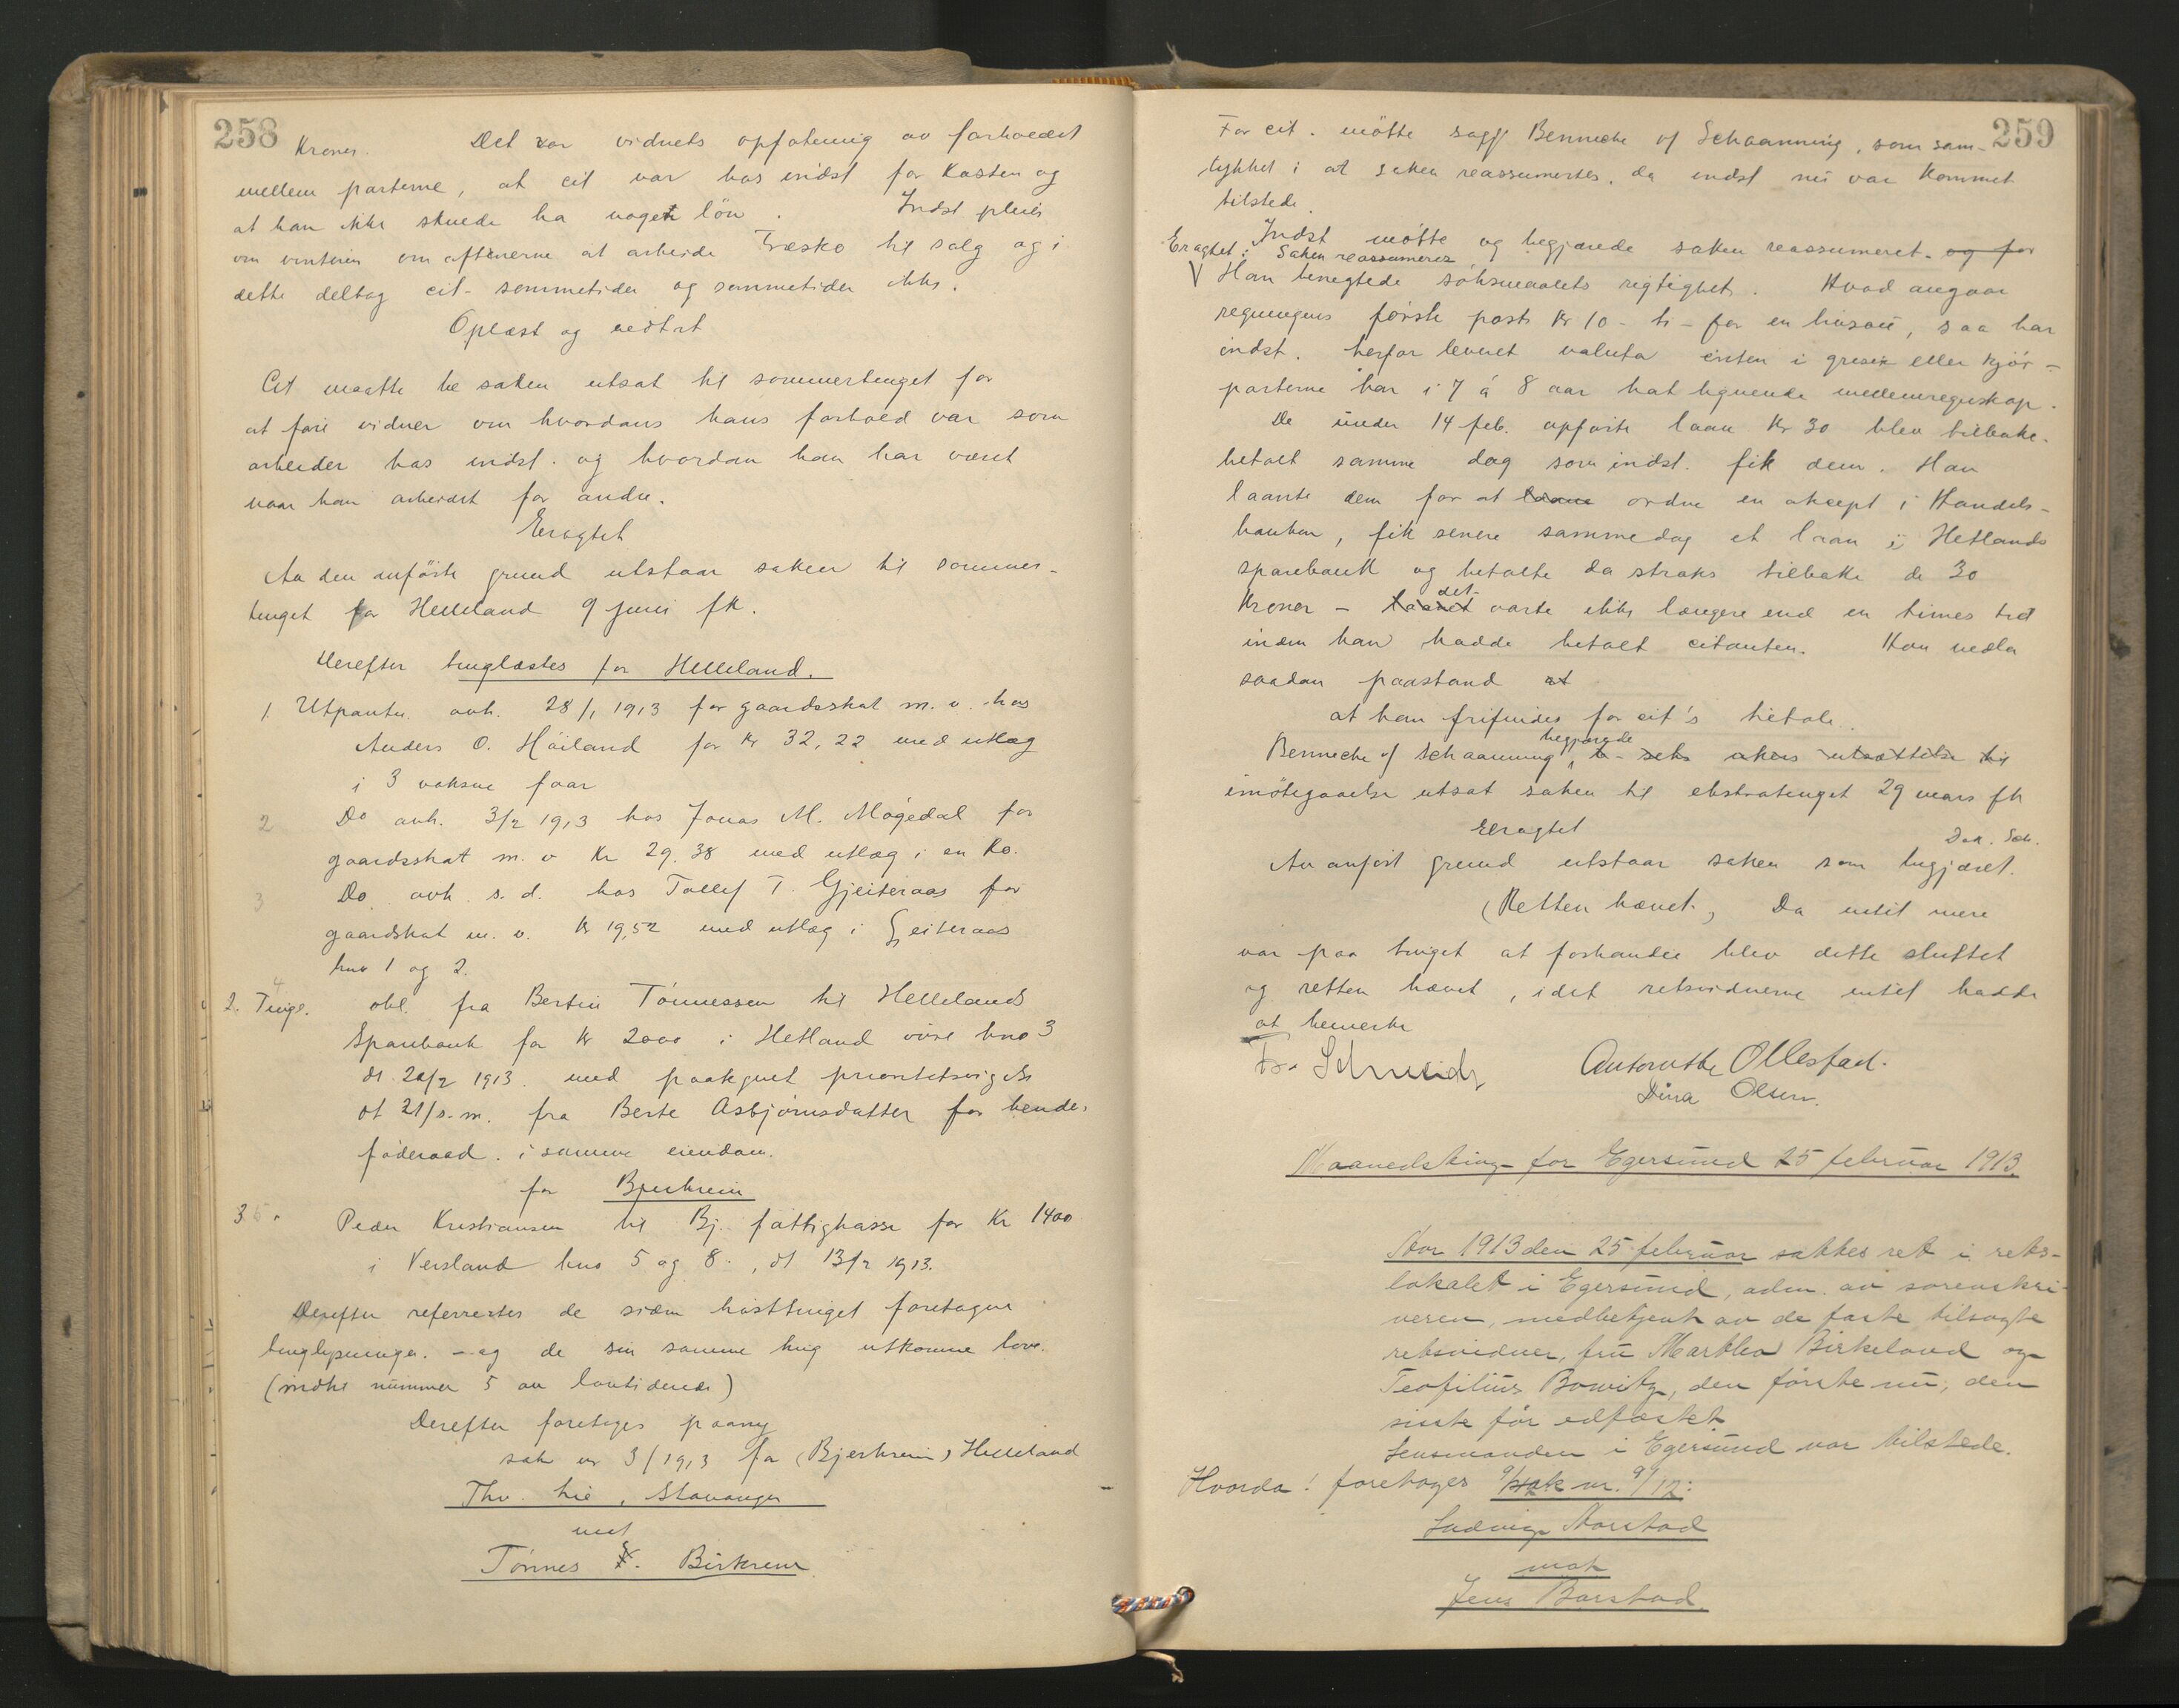 258
Kroner. Det var vidnets opfatning av forholdet
mellem parterne, at cit var hos indst for Kosten og
at han ikke skulde ha noget lön. Indst pleier
om vinteren om aftenerne at arbeide Træsko til salg og i
dette deltog cit. sommetider og sommetider ikke.
Oplæst og vedtat
Cit maatte be saken utsat til sommertinget for
at føre vidner om hvordans hans forhold var som
arbeider hos indst. og hvordan han har været
naar han arbeidet for andre.
Eragtet
Av den anförte grund utstaar saken til sommer-
tinget for Helleland 9 juni fk.
Derefter tinglæstes for Helleland.
1. Utpantn. avh. 28/1 1913 for gaardsskat m. v. hos
Anders O. Höiland for Kr 32,22 med utlæg
i 3 voksne faar
2 Do avh. 3/2 1913 hos Jonas M. Mögedal for
gaardsskat m. v Kr 29.38 med utlæg i en Ko.
3 Do avh. s. d. hos Tollef T. Gjeiteraas for
gaardskat m. v. Kr 19,52 med utlæg i Gjeiteraas
bno 1 og 2.
4
2. Tingl. obl. fra Bertin Tönnessen til Hellelands
Sparebank for Kr 2000 i Hetland övre bno 3
dt. 20/2 1913. med paategnet prioritetsvigelse
dt 21/s.m. fra Berte Asbjörnsdatter for hendes
föderaad. i samme eiendom.
for Bjerkreim
3. 5. Peder Kristiansen til Bj. fattigkasse for Kr 1400
i Versland bno 5 og 8., dt 13/2 1913.
Derefter refereertes de siden hösttinget foretagne
tinglysninger. - og de sin samme ting utkomne love.
(indtil nummer 5 av lovtidende)
Derefter foretoges paany
sak nr 3/1913 for (Bjerkreim) Helleland
Thv. Lie, Stavanger
mot
Tönnes S. Birkrem
259
For cit. mötte sagf Benneche of Schaanning, som sam-
tykket i at saken reassumertes, da indst nu var kommet
tilstede.
Indst mötte og begjærede saken reassumeret. og for
Eragtet: Saken reassumeres
V Han benegtede söksmaalets rigtighet. Hvad angaar
regningens förste post Kr 10 - ti - for en , saa har
indst. herfor leveret valuta enten i griser eller kjör-
parterne har i 7 á 8 aar hat lignende mellemregnskap.
De under 14 feb. opförte laan Kr 30 blev tilbake-
betalt samme dag som indst. fik dem. Han
laante dem for at laane ordne en aksept i Handels-
banken, fik senere sammedag et laan i Hetlands
sparebank og betalte da straks tilbake de 30
Kroner - laanet det varte ikke længere end en times tid
inden han hadde betalt citanten. Han nedla
saadan paastand at
at han frifindes for cit's tiltale.
Bennecke of Schaanning begjærede saks utsættelse til
imötegaaelse utsat saken til ekstratinget 29 mars fk
Eragtet
Dok. Sch.
Av anfört grund utstaar saken som begjæret.
(Retten hævet.) Da intet mere
var paa tinget at forhandle blev dette sluttet
og retten hævet, idet retsvidnerne intet hadde
at bemerke
Schmidt Ollestad.
Dina Olsen.
Maanedsting for Egersund 25 februar 1913.
Aar 1913 den 25 februar sattes ret i rets-
lokalet i Egersund, adm. av sorenskri-
veren, medbetjent av de faste tilsagte
retsvidner, fru Marthea Birkeland og
Teofilius Bowitz, den förste nu, den
sisste för edfæstet
Lensmanden i Egersund var tilstede.
Hvorda! foretoges sak nr. 99/12:
Ludvig Aarstad
mot
Jens Barstad.